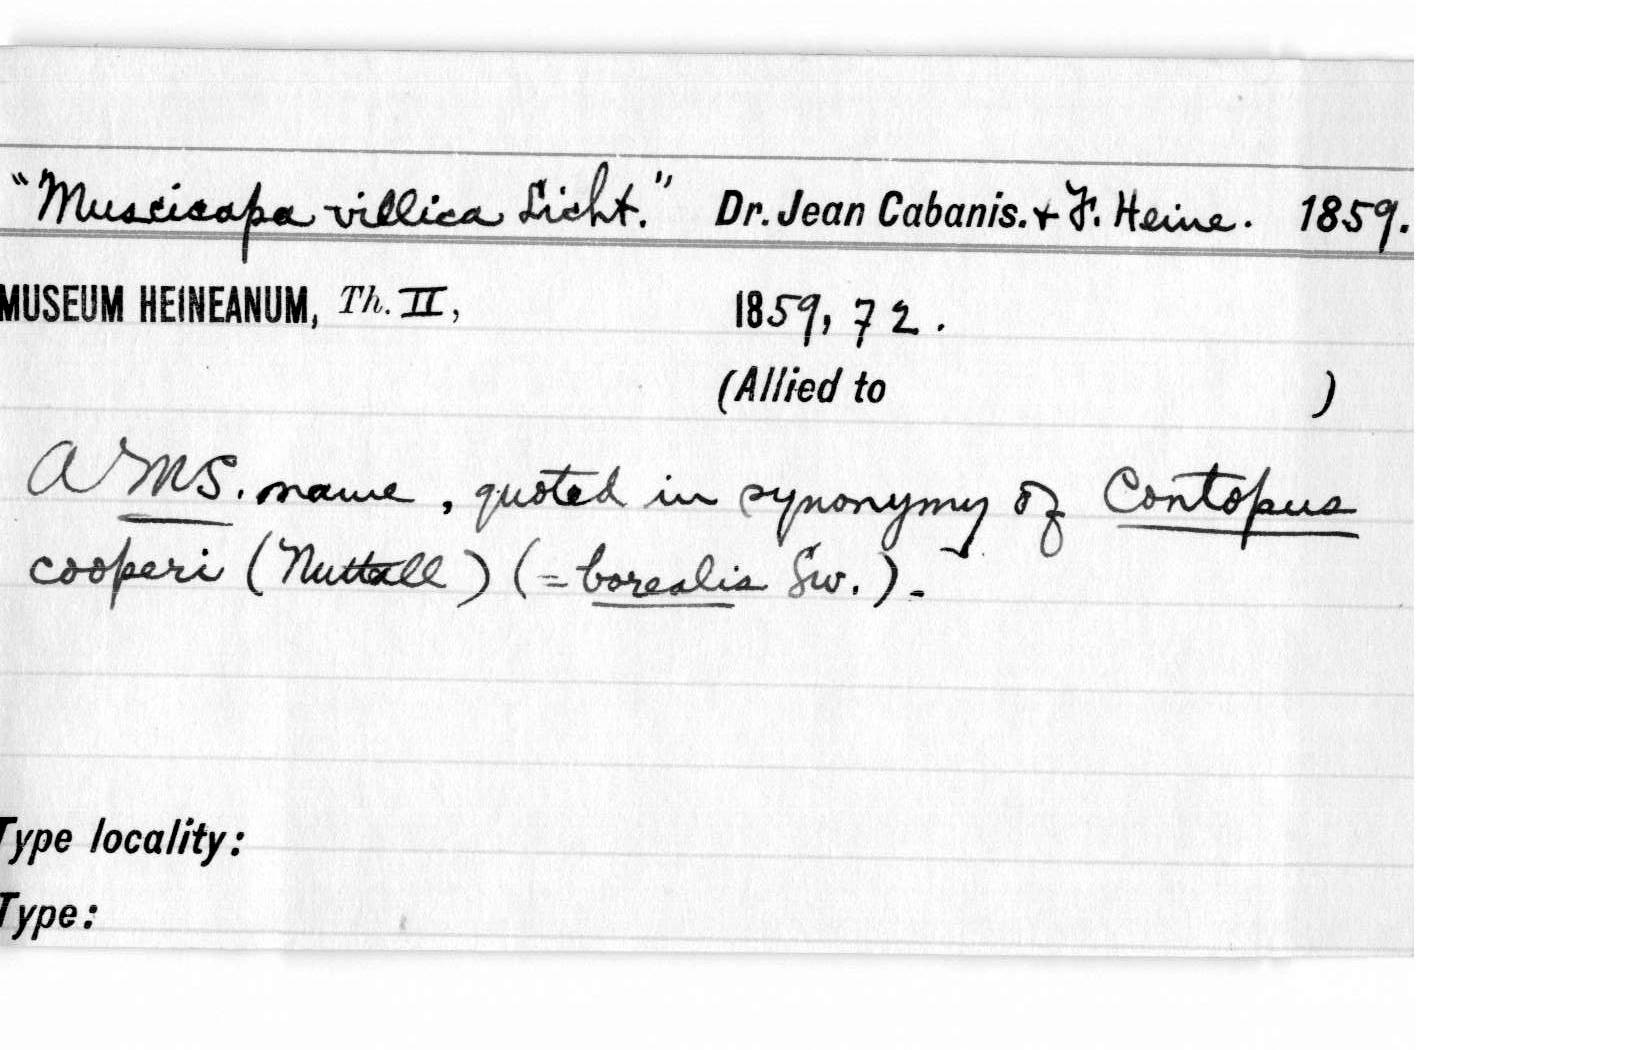 "Muscicapa villica Licht." Dr. Jean Cabanis. + F. Heine. 1859.
MUSEUM HEINEANUM, Th. II, 1859, 72.
(Allied to )
A MS. name, quoted in synonymy of Contopus
cooperi (Nuttall) (= borealis Sw.).
Type locality:
Type: